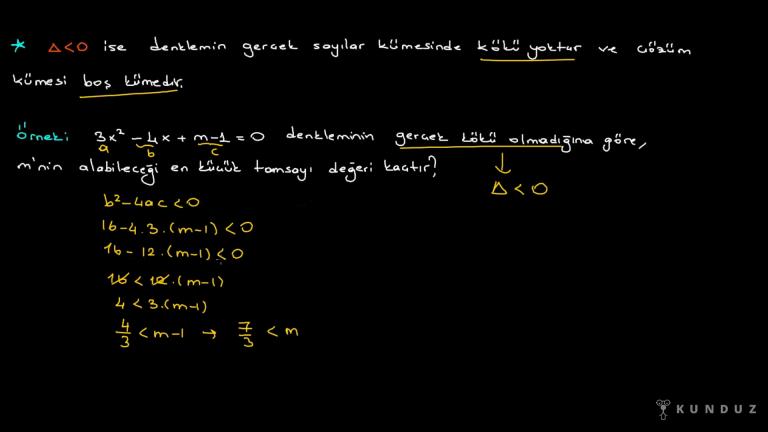 * Δ<0 ise denklemin gerçek sayılar kümesinde kökü yoktur ve çözüm
kümesi boş kümedir.
Örnek: 3x² - 4x + m-1 = 0 denkleminin gerçek kökü olmadığına göre,
a b c
m'nin alabileceği en küçük tamsayı değeri kaçtır?
Δ < 0
b² - 4ac < 0
16 - 4.3.(m-1) < 0
16 - 12.(m-1) < 0
16 < 12.(m-1)
4 < 3.(m-1)
4/3 < m-1 → 7/3 < m
KUNDUZ